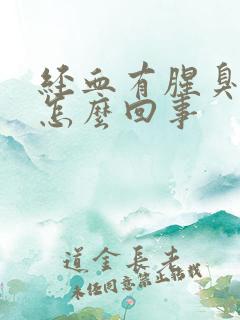 經血有腥臭
怎麼回事
道金長老
未經同意禁止轉載